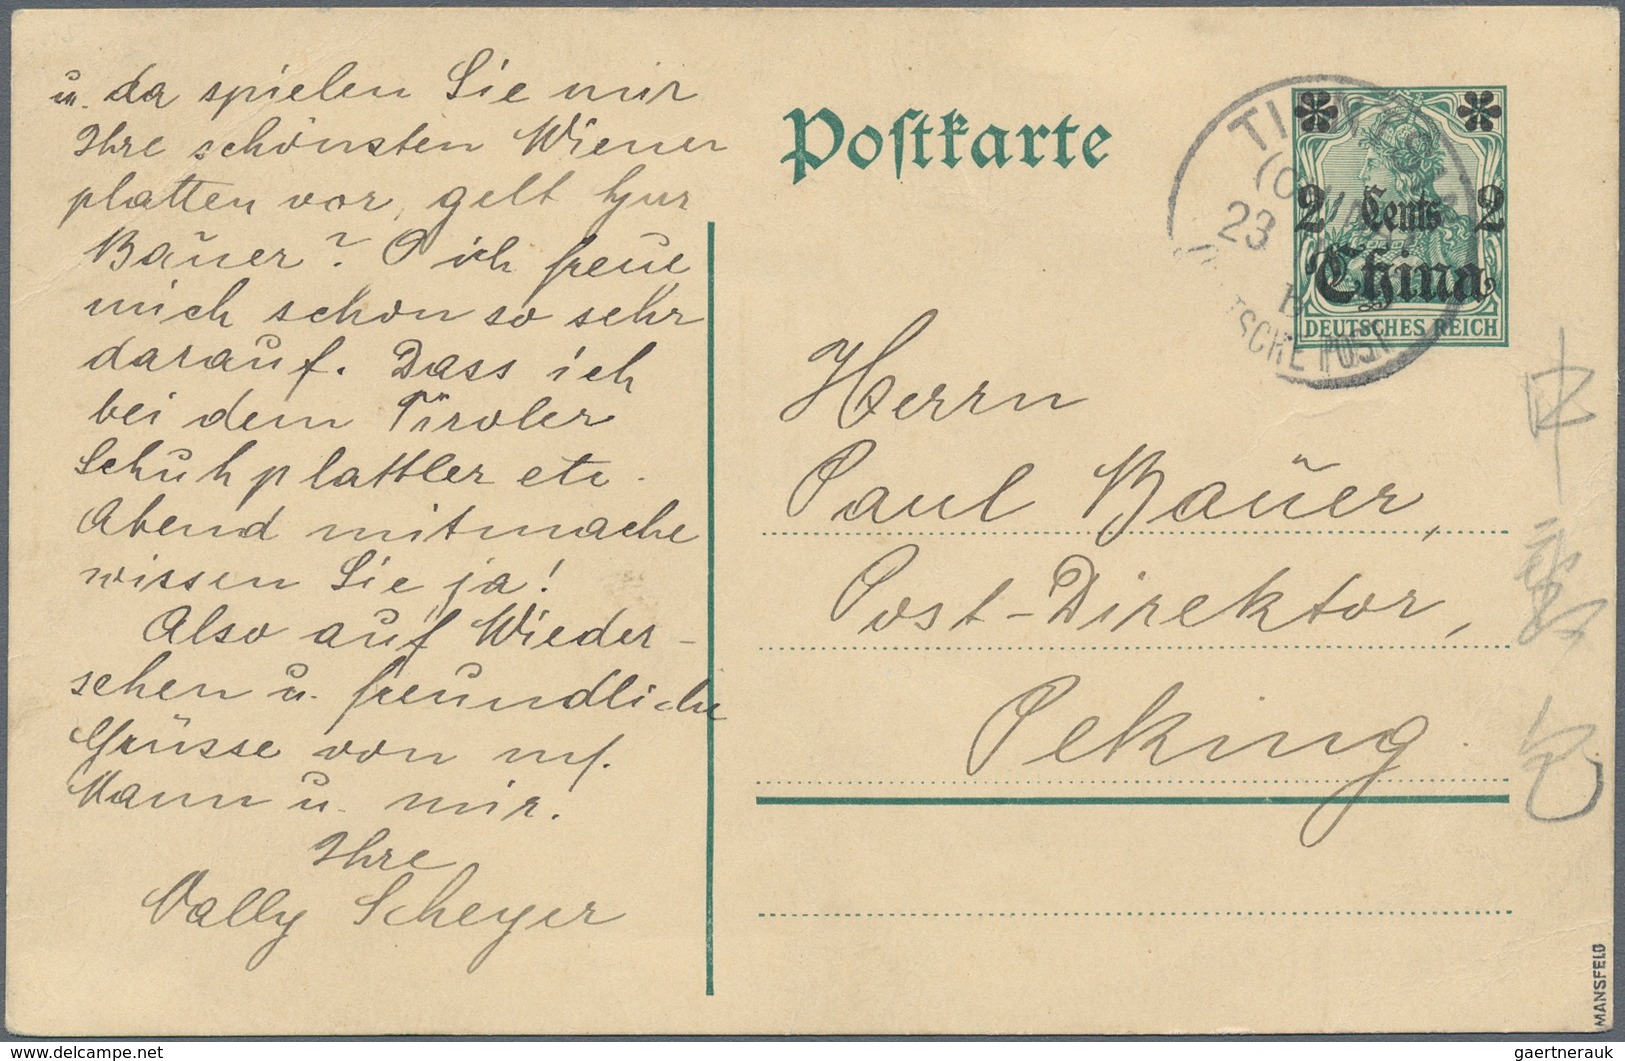 u. da spielen Sie mir
Ihre schönsten Wiener
platten vor, gelt Herr
Bauer? O ich freue
mich schon so sehr
darauf. Dass ich
bei dem Tiroler
Schuhplattler etc.
Abend mitmache
wissen Sie ja!
Also auf Wieder-
sehen u. freundliche
Grüsse von m.
Mann u. mir.
Ihre
Vally Scheyer
Postkarte
23
TSCHE POST
2 Cents 2
China
DEUTSCHES REICH
Herrn
Paul Bauer,
Post-Direktor,
Peking
MANSFELD
www.delcampe.net
gaertnerauk